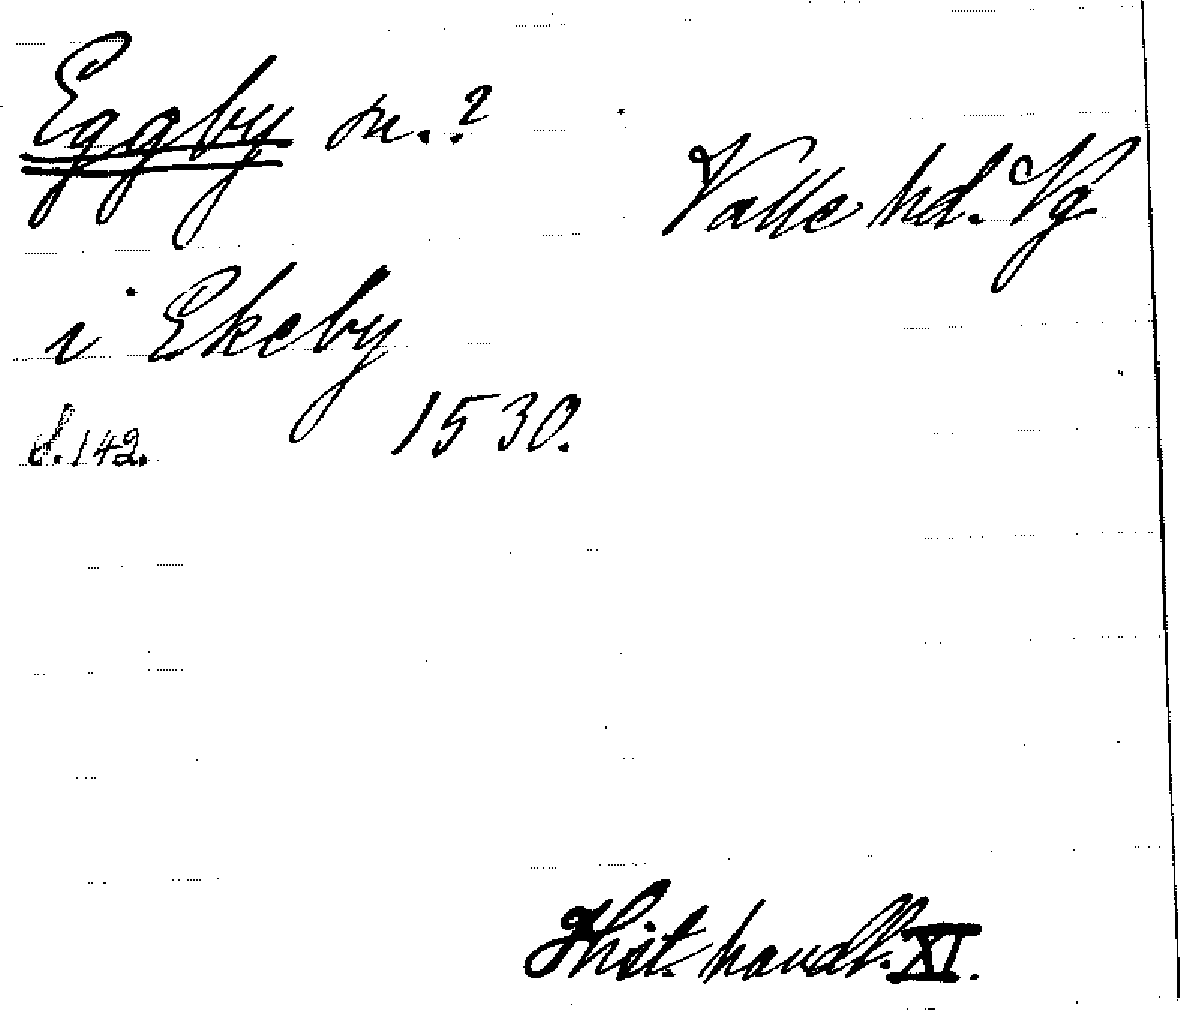 Eggby sn.?
Valle hd. Vg
i Ekeby
s. 142. 1530.
Hist. handl. XI.